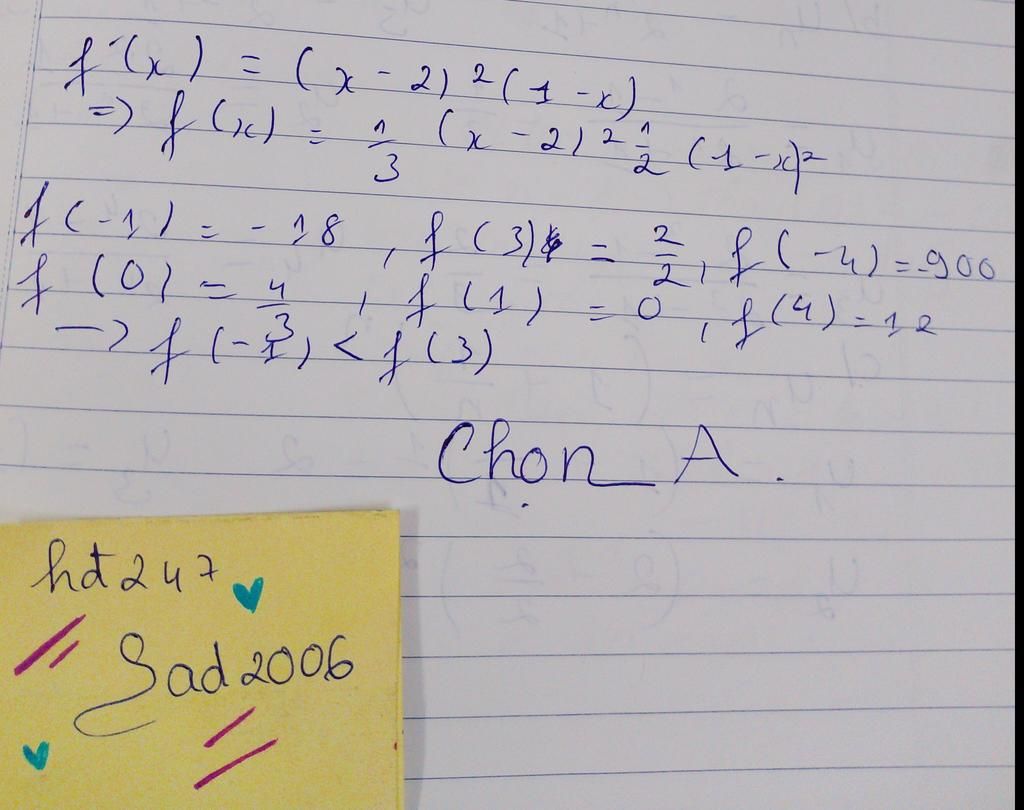 f'(x) = (x - 2)²(1 - x)
=> f(x) = 1/3 (x - 2)² 1/2 (1 - x)²
f(-1) = -18 , f(3) = 2/2, f(-4) = -900
f(0) = 4/3 , f(1) = 0 , f(4) = 12
-> f(-1) < f(3)
Chọn A.
hđ247
Sad2006